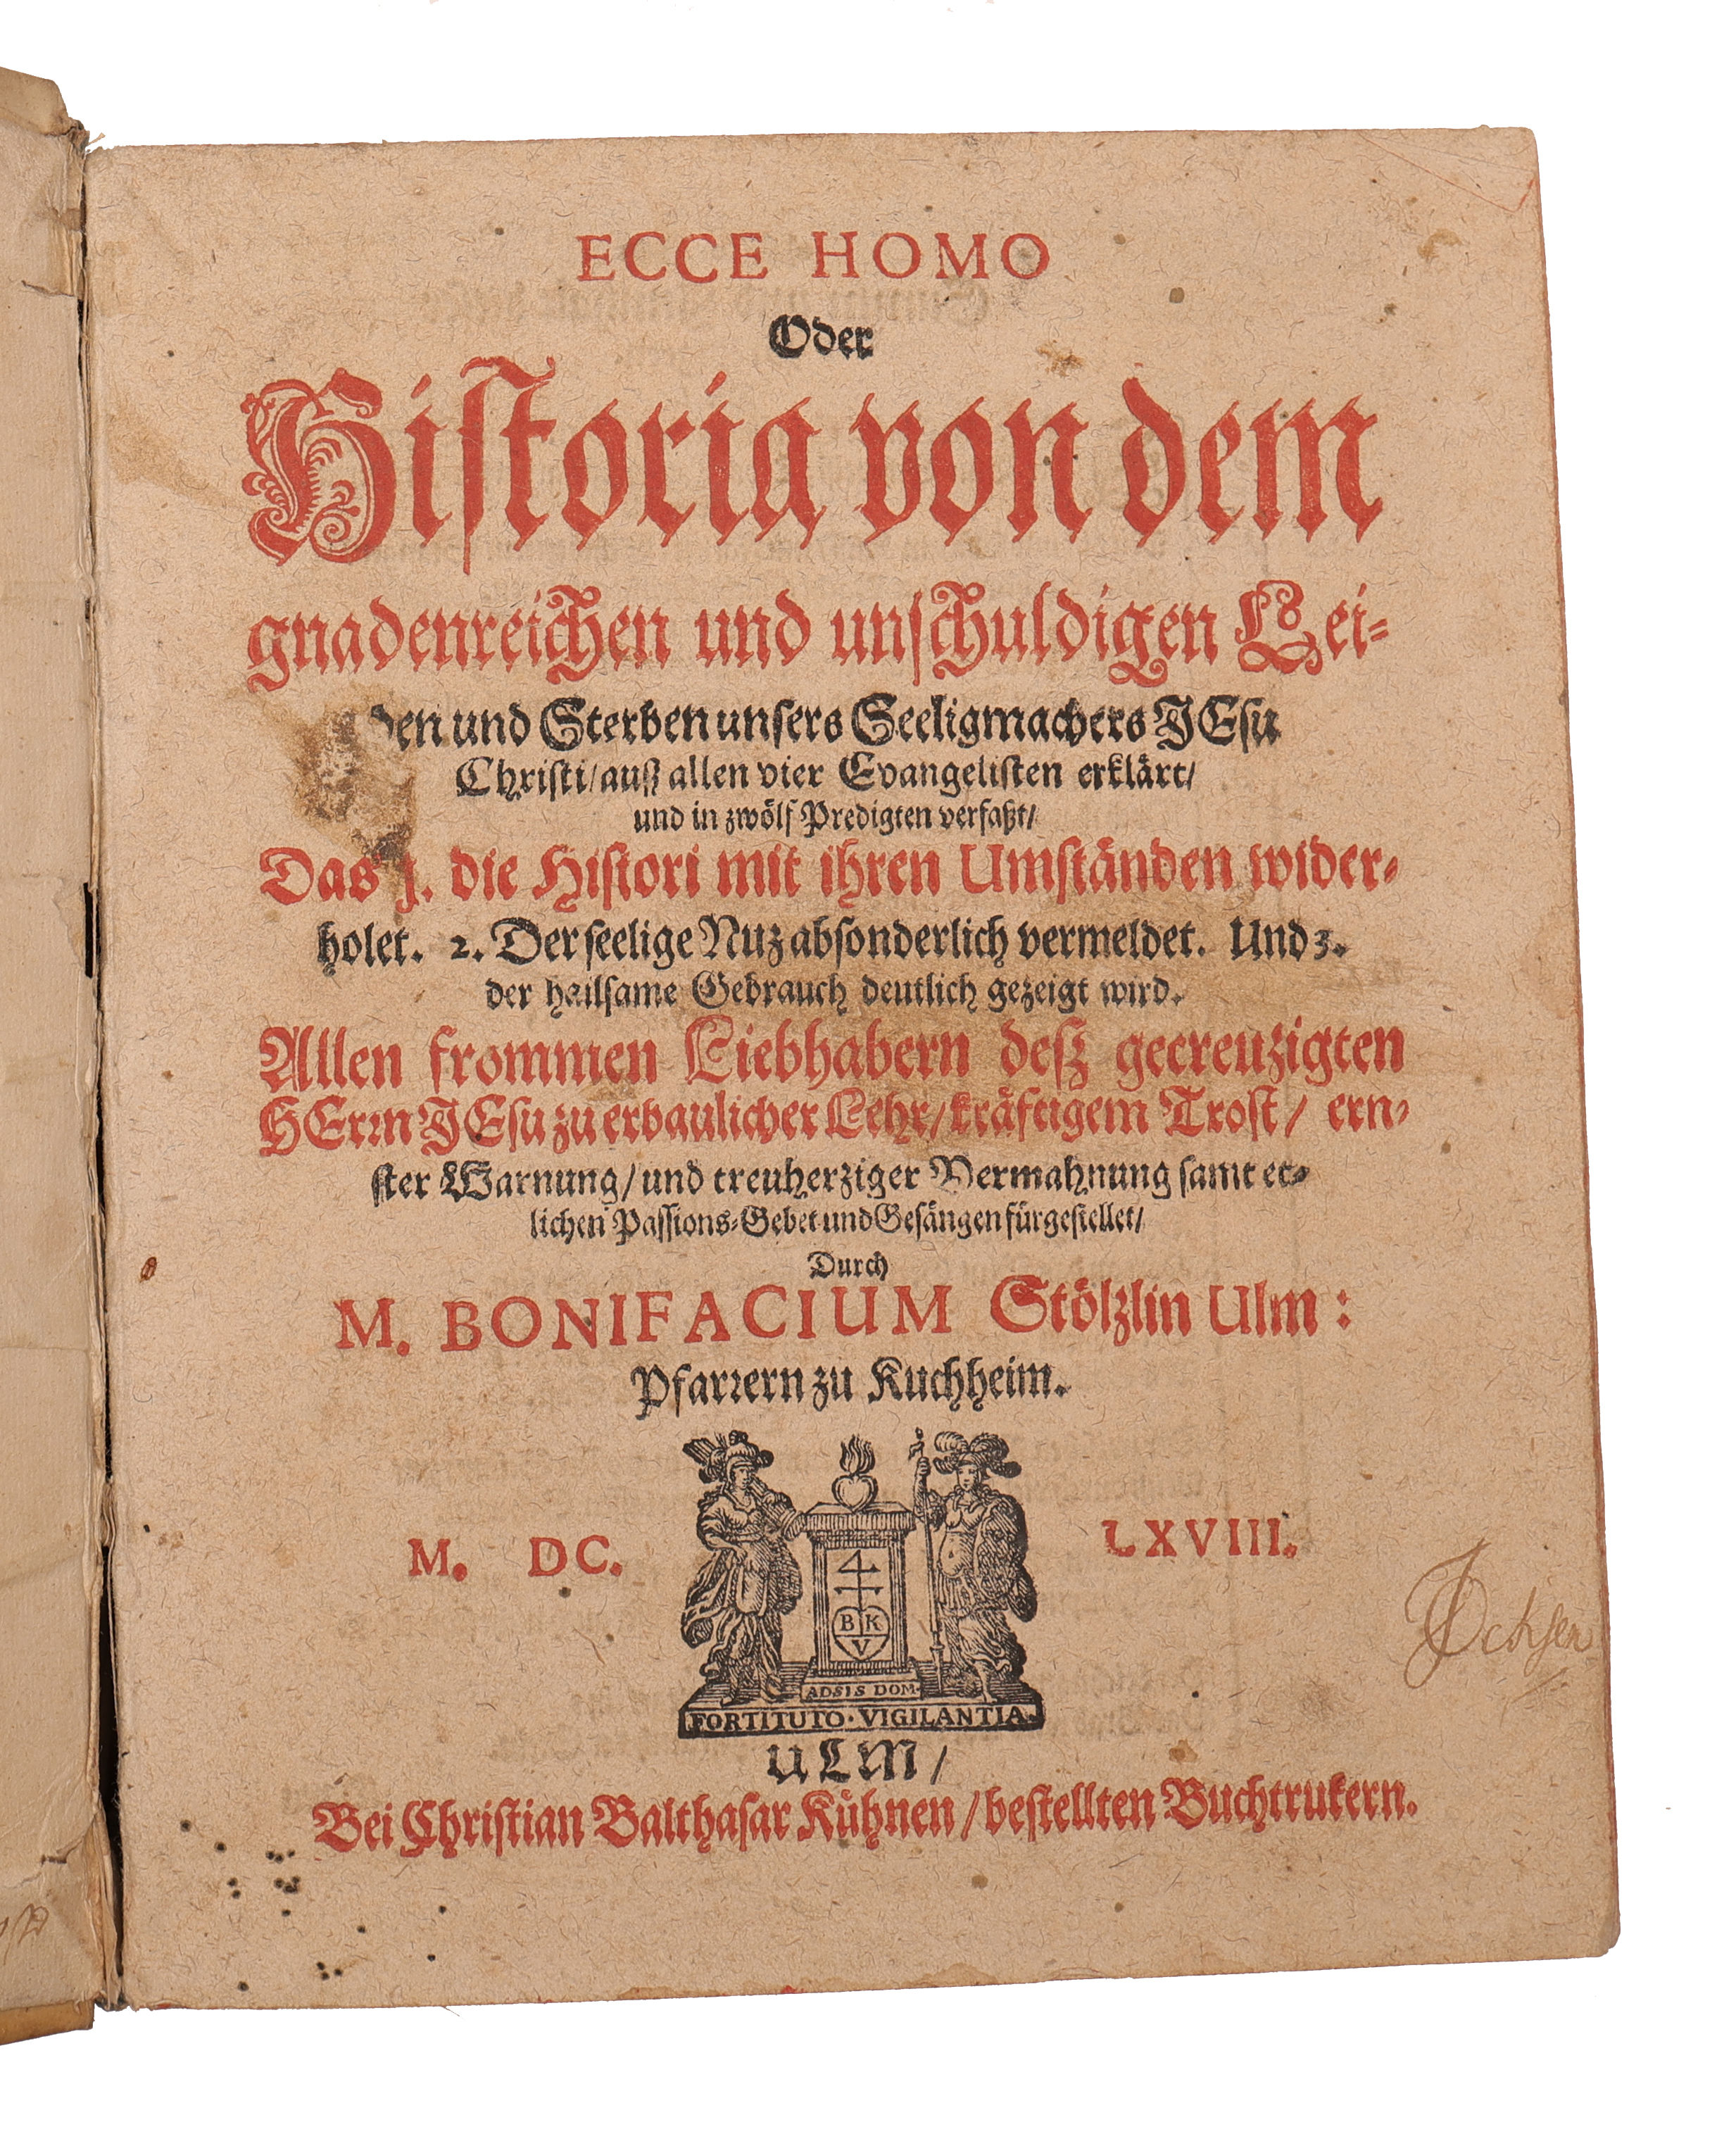 ECCE HOMO
Oder
Historia von dem
gnadenreichen und unschuldigen Lei-
den und Sterben unsers Seeligmachers JEsu
Christi/ auß allen vier Evangelisten erklärt/
und in zwölf Predigten verfaßt/
Das 1. die Histori mit ihren Umständen wider-
holet. 2. Der seelige Nuz absonderlich vermeldet. Und 3.
der hailsame Gebrauch deutlich gezeigt wird.
Allen frommen Liebhabern deß gecreuzigten
HErrn JEsu zu erbaulicher Lehr/ kräftigem Trost/ ern-
ster Warnung/ und treuherziger Vermahnung samt et-
lichen Passions-Gebet und Gesängen fürgestellet/
Durch
M. BONIFACIUM Stölzlin Ulm:
Pfarrern zu Kuchheim.
M. DC. LXVIII.
B K
V
ADSIS DOM.
FORTITUTO · VIGILANTIA.
ULM/
Bei Christian Balthasar Kühnen/ bestellten Buchtrukern.